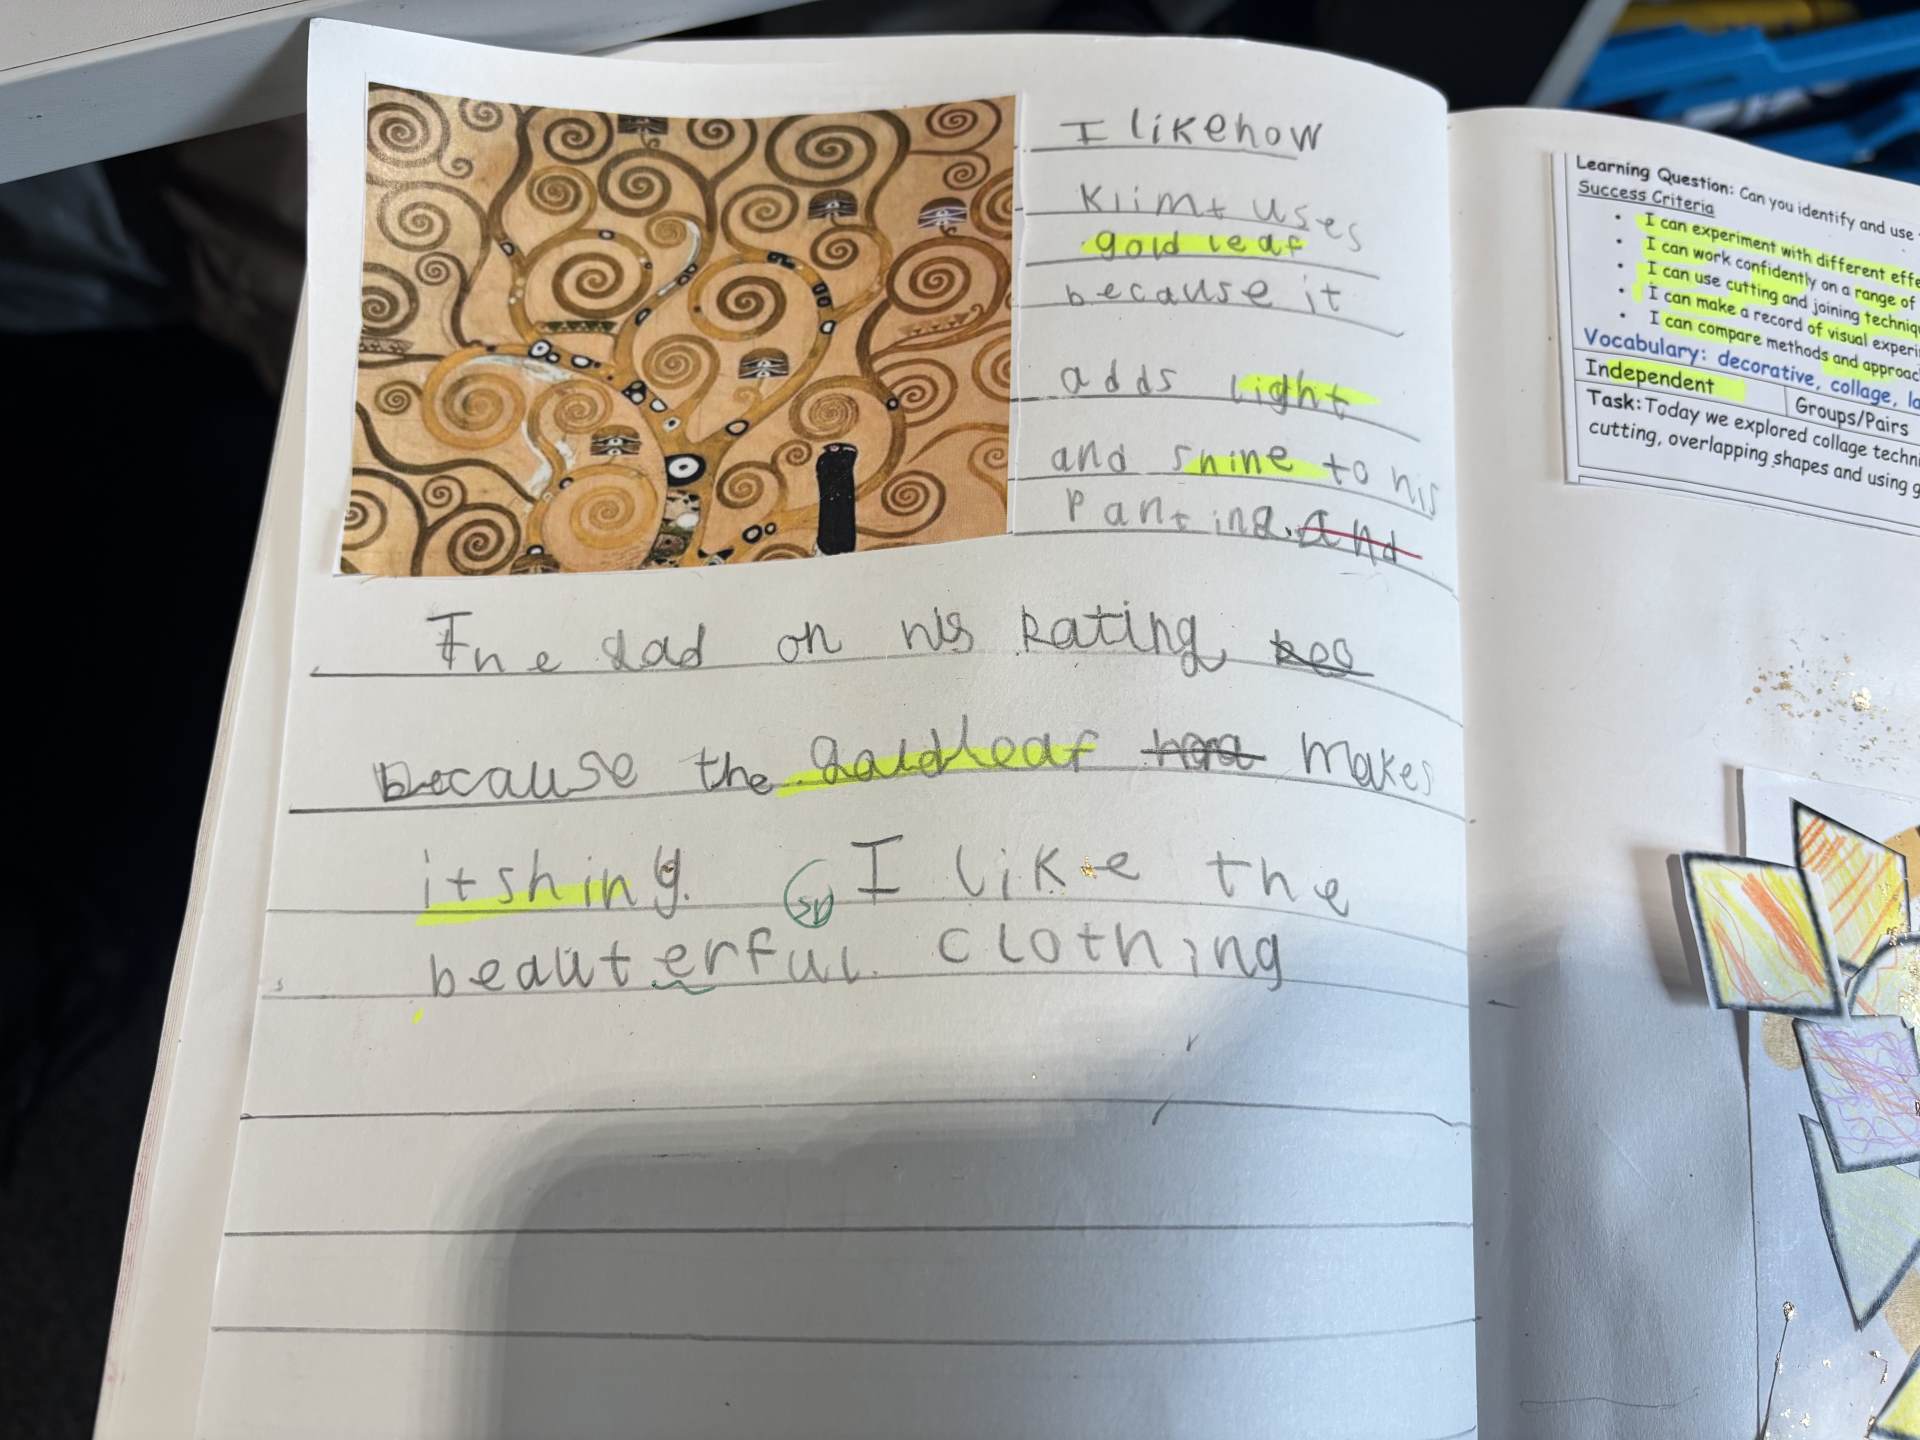 I like how
Klimt uses
gold leaf
because it
adds light
and shine to his
Panting. and
The dad on his Rating,
because the goldleaf makes
it shiny. sp I like the
beauterful clothing
Learning Question: Can you identify and use
Success Criteria
• I can experiment with different effe
• I can work confidently on a range of
• I can use cutting and joining techniqu
• I can make a record of visual experi
• I can compare methods and approac
Vocabulary: decorative, collage, la
Independent
Groups/Pairs
Task: Today we explored collage techni
cutting, overlapping shapes and using g